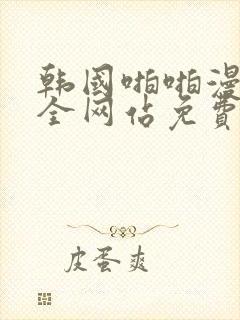 韩国啪啪漫
全网佔免费
皮蛋爽